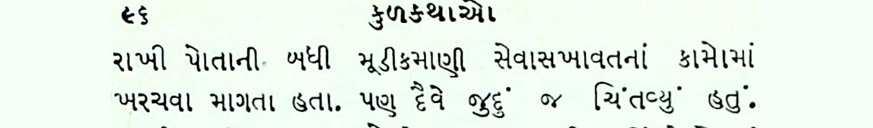 ૯૬ કુળકથાઓ
રાખી પોતાની બધી મૂડીકમાણી સેવાસખાવતનાં કામોમાં
ખરચવા માગતા હતા. પણ દૈવે જુદું જ ચિંતવ્યું હતું.